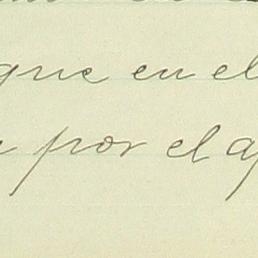 que en el
por el